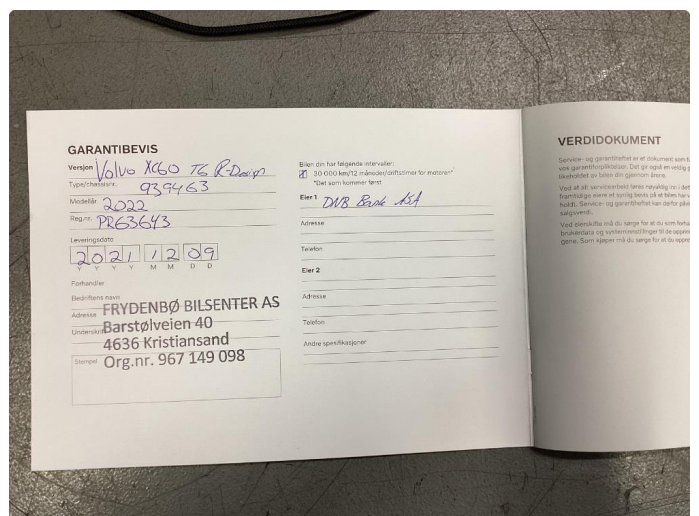 GARANTIBEVIS
Versjon Volvo XC60 T6 R-Design
Type/chassisnr. 939463
Modellår 2022
Reg.nr. PR63643
Leveringsdato
2021 12 09
Y Y Y Y M M D D
Forhandler
Bedriftens navn
FRYDENBØ BILSENTER AS
Adresse
Barstølveien 40
Underskrift
4636 Kristiansand
Stempel
Org.nr. 967 149 098
Bilen din har følgende intervaller:
30 000 km/12 måneder/driftstimer for motoren*
*Det som kommer først
Eier 1 DNB Bank ASA
Adresse
Telefon
Eier 2
Adresse
Telefon
Andre spesifikasjoner
VERDIDOKUMENT
Service- og garantiheftet er et dokument som
vos garantiforpliktelser. Det gir også en veldig
likeholdet av bilen din gjennom årene.
Ved at alt servicearbeid føres nøyaktig inn i det
framtidige eiere et synlig bevis på at bilen har
holdt. Service- og garantiheftet kan derfor
salgsverdi.
Ved eierskifte må du sørge for at du som
brukerdata og systeminnstillinger til de
gene. Som kjøper må du sørge for at du